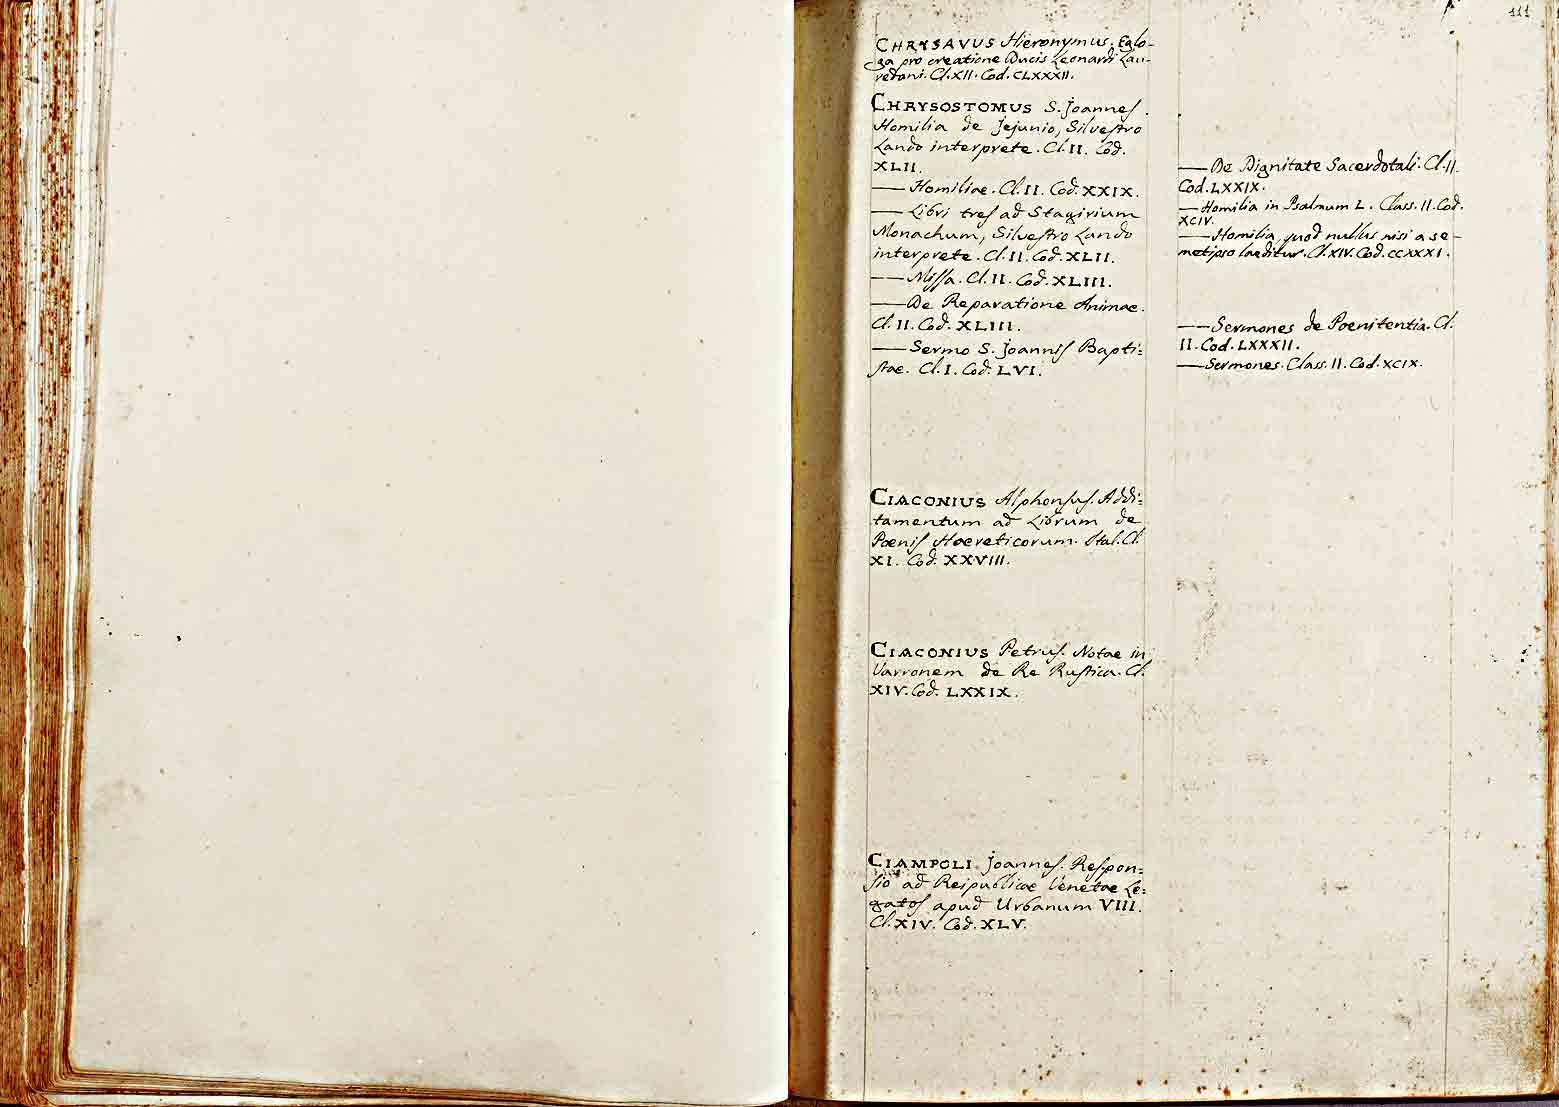 111
CHRYSAVUS Hieronymus. Eglo-
ga pro creatione Ducis Leonardi Lau-
redani. Cl. XII. Cod. CLXXXII.
CHRYSOSTOMUS S. Joannes.
Homilia de Jejunio, Silvestro
Lando interprete. Cl. II. Cod.
XLII.
— Homiliae. Cl. II. Cod. XXIX.
— Libri tres ad Stagirium
Monachum, Silvestro Lando
interprete. Cl. II. Cod. XLII.
— Missa. Cl. II. Cod. XLIII.
— De Reparatione Animae.
Cl. II. Cod. XLIII.
— Sermo S. Joannis Bapti=
stae. Cl. I. Cod. LVI.
CIACONIUS Alphonsus. Addi=
tamentum ad Librum de
Poenis Haereticorum. Ital. Cl.
XI. Cod. XXVIII.
CIACONIUS Petrus. Notae in
Varronem de Re Rustica. Cl.
XIV. Cod. LXXIX.
CIAMPOLI Joannes. Respon=
sio ad Reipublicae Venetae Le=
gatos apud Urbanum VIII.
Cl. XIV. Cod. XLV.
— De Dignitate Sacerdotali. Cl. II.
Cod. LXXIX.
— Homilia in Psalmum L. Class. II. Cod.
XCIV.
— Homilia, quod nullus nisi a se-
metipso laeditur. Cl. XIV. Cod. CCXXXI.
— Sermones de Poenitentia. Cl.
II. Cod. LXXXII.
— Sermones. Class. II. Cod. XCIX.